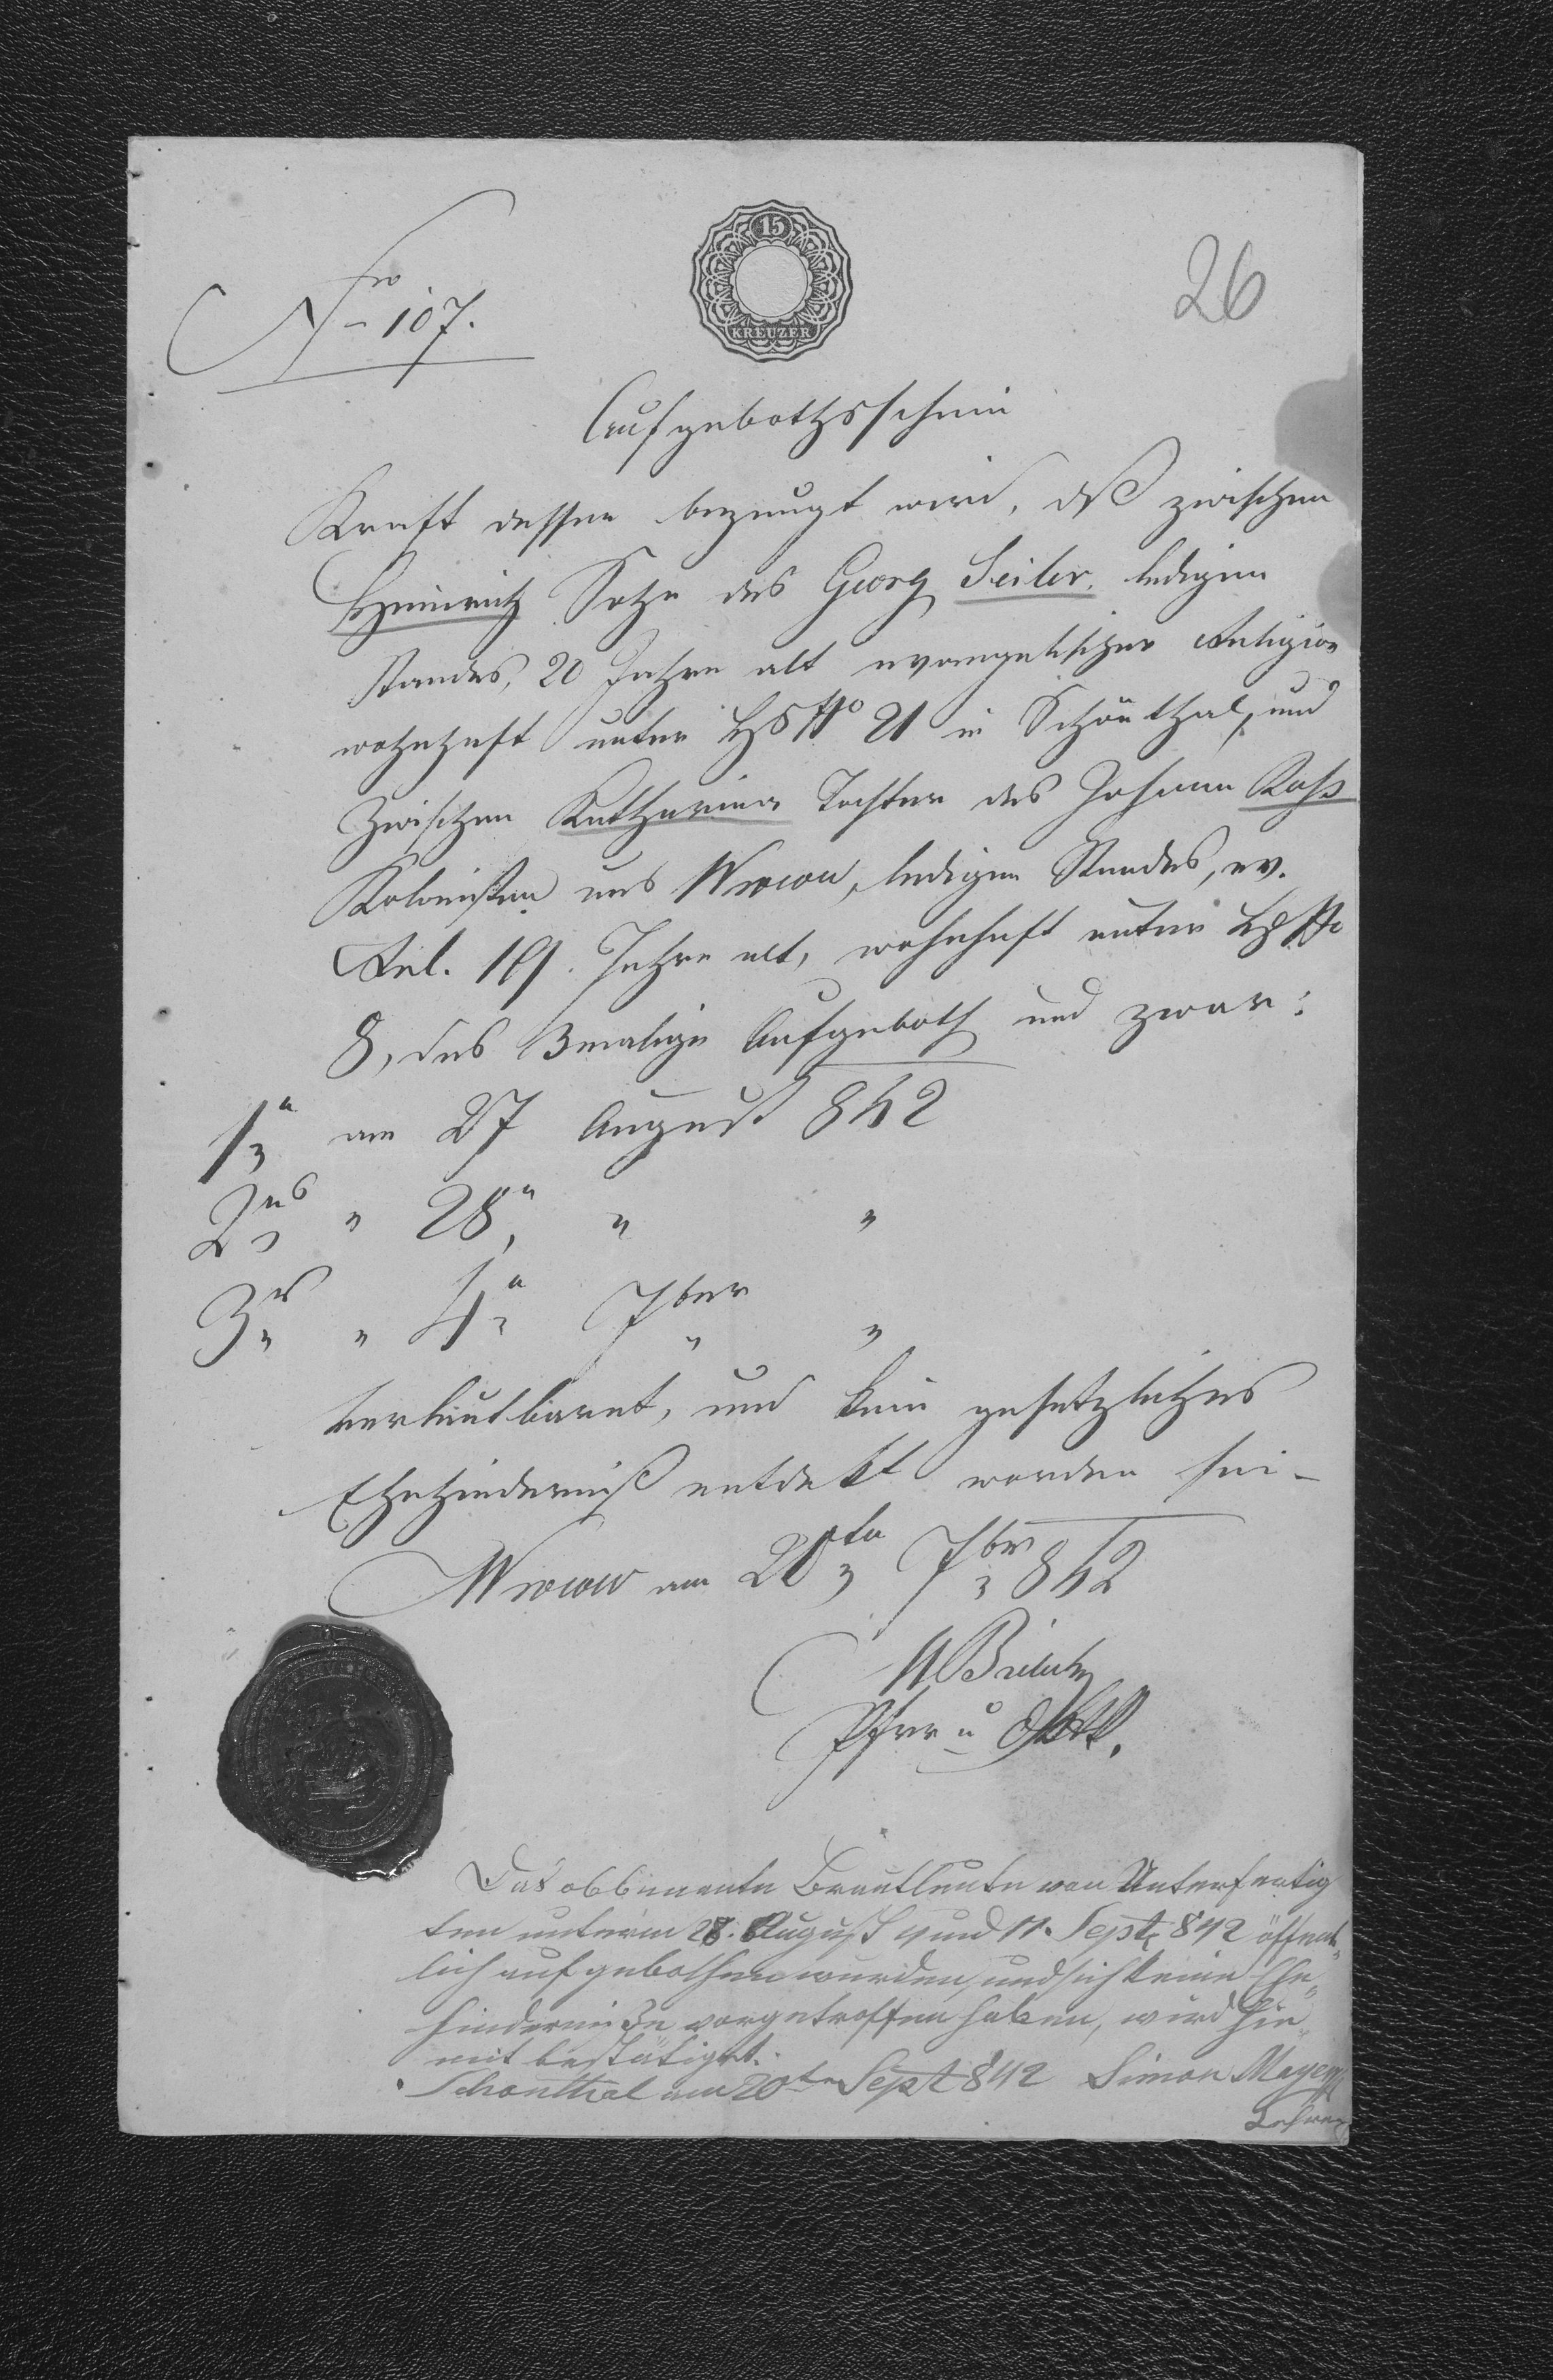 Nro 107.
15
KREUZER
26
Aufgebothsschein
Kraft dessen bezeugt wird, dß zwischen
Heinrich Sohn des Georg Seiler, ledigen
Standes, 20 Jahre alt evangelischer Religion
wohnhaft unter HsNo 21 in Schönthal, und
zwischen Katharina Tochter des Johann
Kolonisten aus ledigen Standes, ev.
Rel. 19. Jahre alt, wohnhaft unter Hs No
8, das 3malige Aufgeboth und zwar:
1 am 27 August 842
2tns " 28 " "
3 " 4 7ber "
verlautbaret, und kein gesetzliches
Ehehinderniß entdekt worden sei-
am 20ten 7br 842
Pfrr u
Das obbenannte Brautleute von Unterfertig
ten unterm 28. August 4 und 11. Sept 842 öffent-
lich aufgebothen wurden, und sich keine Ehe-
hinderniße vorgetroffen haben, wird hie-
mit bestätiget.
Schönthal am 20ten Sept 842 Simon Mayer
Lehrer